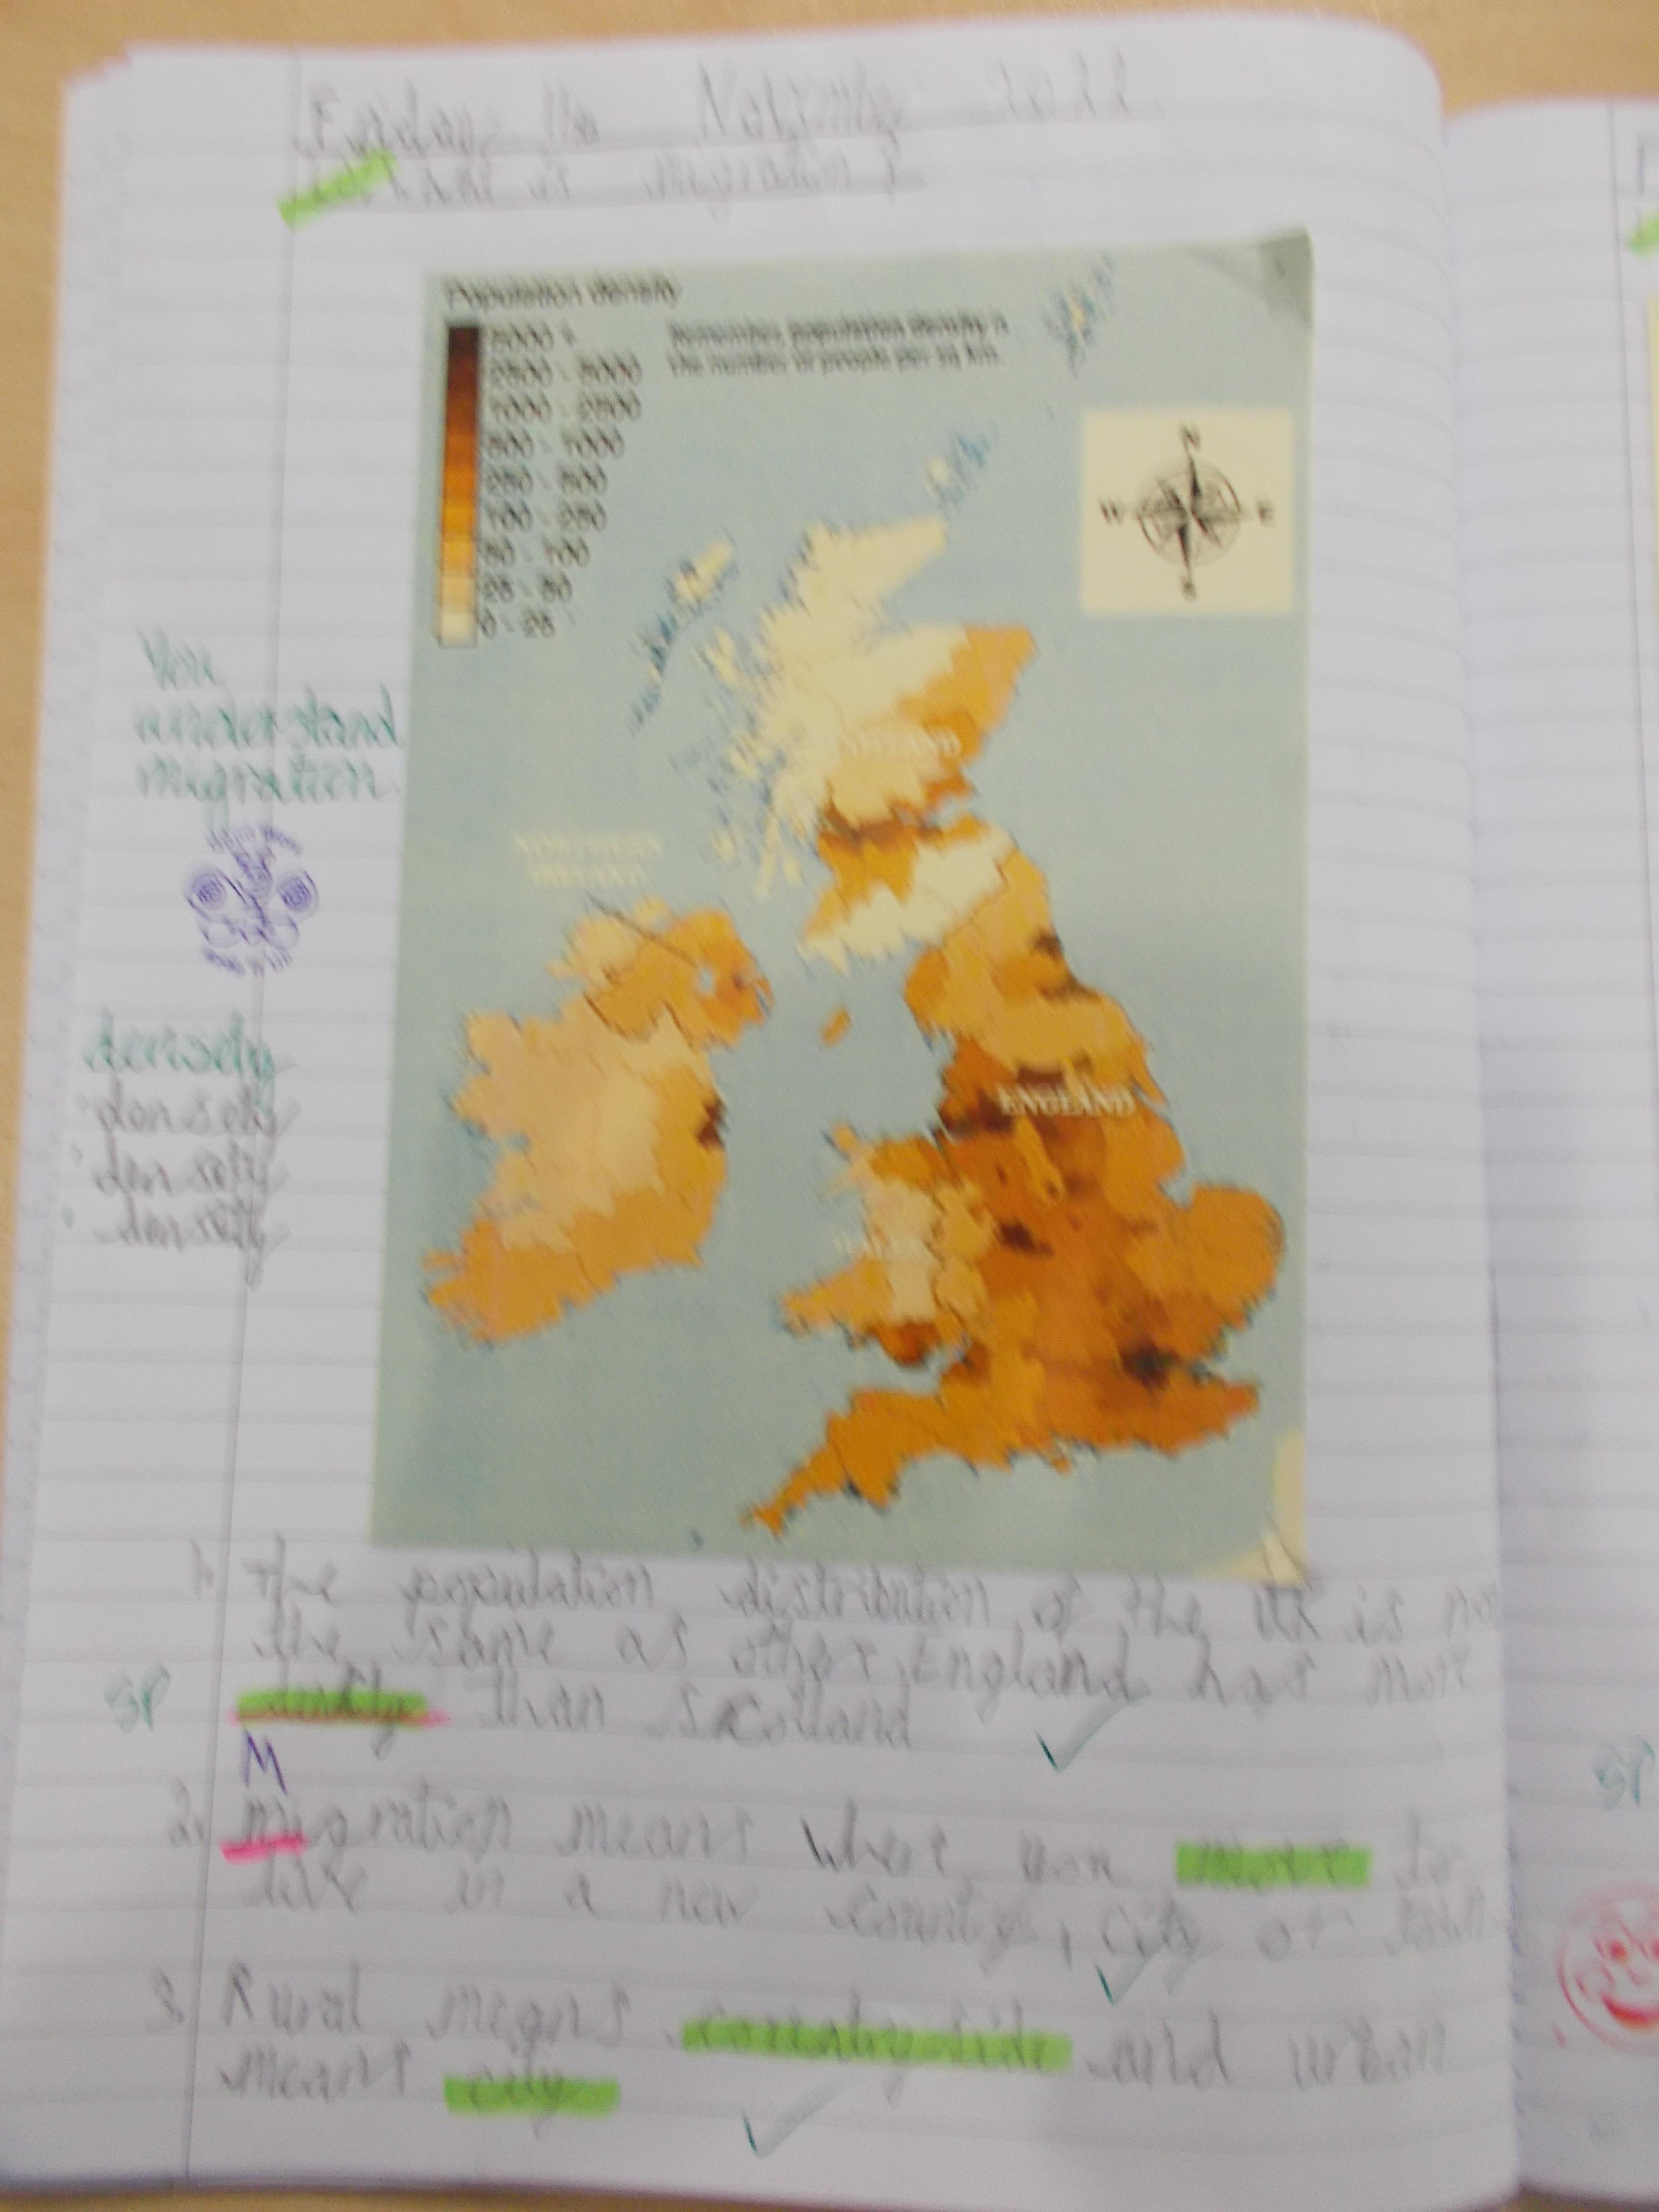 2022
is migration?
Population density
5000 +
2500 - 5000
1000 - 2500
500 - 1000
250 - 500
100 - 250
50 - 100
25 - 50
0 - 25
Remember, population density is
the number of people per sq km.
N
W E
S
SCOTLAND
NORTHERN
IRELAND
ENGLAND
WALES
You
understand
migration.
densely
densely
densely
densely
1. The population distribution of the UK is
the same as other, England has more
SP
than Scotland
M
2. migration means where you move to
live in a new county, city or town
3. Rural means and urban
means city
SP